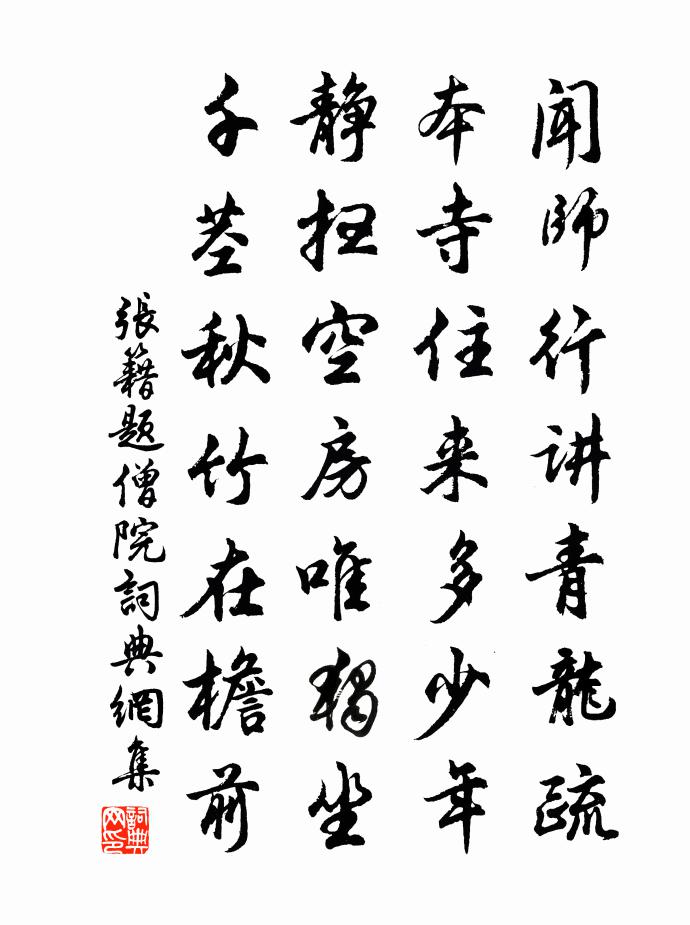 聞師行讲青龍疏
本寺住来多少年
靜扫空房唯獨坐
千茎秋竹在檐前
張籍題僧院詞典網集
詞典网印